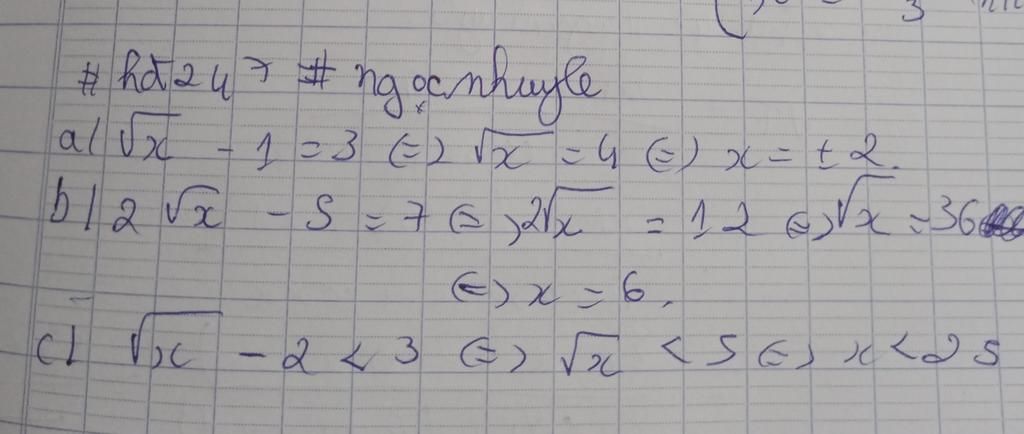 3
# hđ247 # ngọcnhuyle
a/ √x - 1 = 3 (=) √x = 4 (=) x = ± 2.
b/ 2 √x - 5 = 7 (=) 2√x = 12 (=) √x = 36
(=) x = 6.
c/ √x - 2 < 3 (=) √x < 5 (=) x < 25